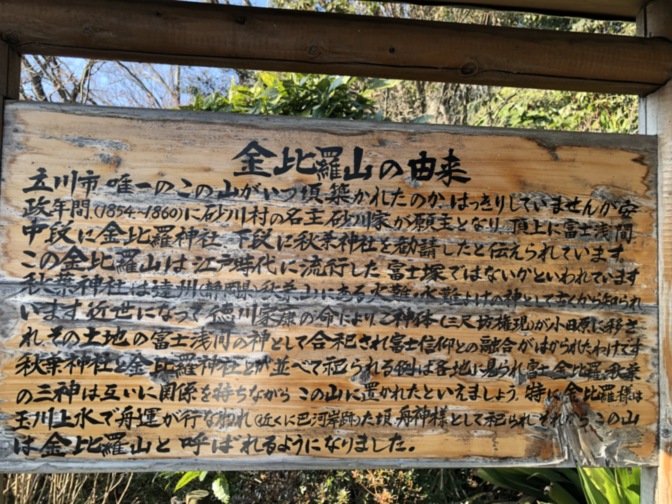 金比羅山の由来
立川市唯一のこの山がいつ頃築かれたのか、はっきりしていませんが安
政年間(1854~1860)に砂川村の名主砂川家が願主となり、頂上に富士浅間、
中段に金比羅神社、下段に秋葉神社を勧請したと伝えられています。
この金比羅山は江戸時代に流行した富士塚ではないかといわれています
秋葉神社は遠州(静岡県)秋葉山にある火難・水難よけの神として古くから知られ
います。近世になって徳川家康の命によりご神体(三尺坊権現)が小田原に移さ
れ、その土地の富士浅間の神として合祀され富士信仰との融合がはかられたわけです
秋葉神社と金比羅神社とが並べて祀られる例は各地に見られ富士、金比羅、秋葉
の三神は互いに関係を持ちながらこの山に置かれたといえましょう。特に金比羅様は
玉川上水で舟運が行なわれ(近くに巴河岸跡)た頃、舟神様として祀られそれからこの山
は金比羅山と呼ばれるようになりました。